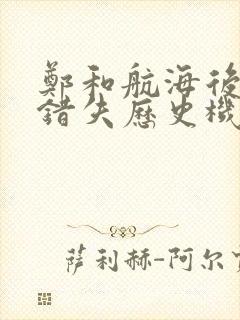 鄭和航海後
錯失歷史機
萨利赫-阿尔